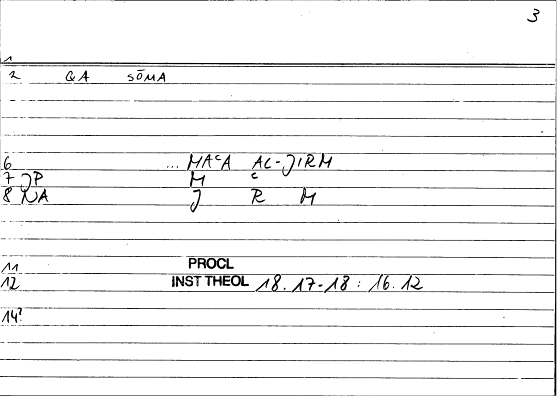 3
1
2 QA SŌMA
6 ... MAᶜA AL-JIRM
7 JP M ᶜ
8 NA J R M
11 PROCL
12 INST THEOL 18.17-18 : 16.12
14?